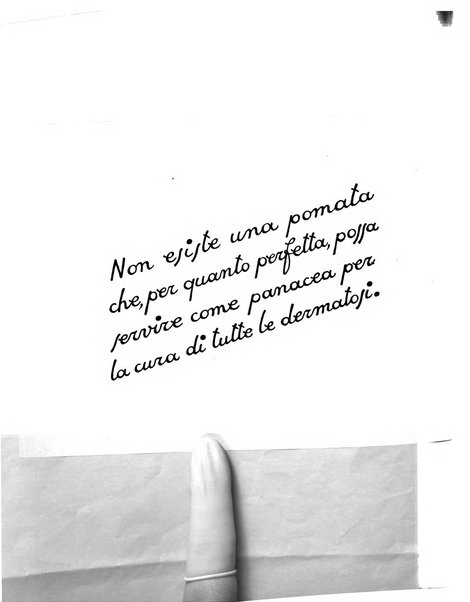 Non esiste una pomata
che, per quanto perfetta, possa
servire come panacea per
la cura di tutte le dermatosi.